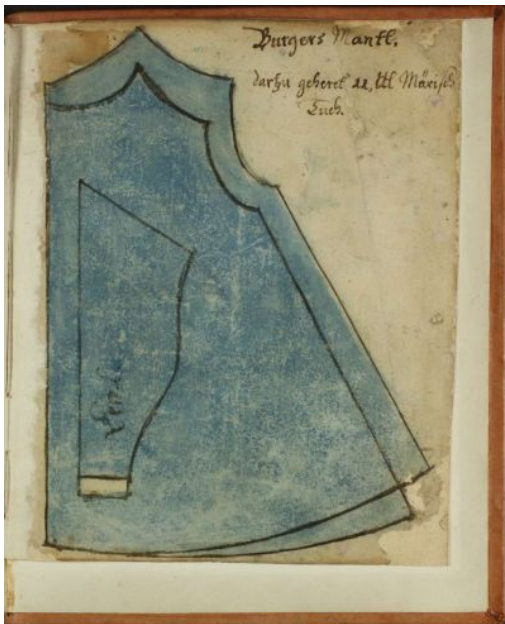 Burgers Mantl.
darzu geheret 22, Ell Märisch
Tuch.